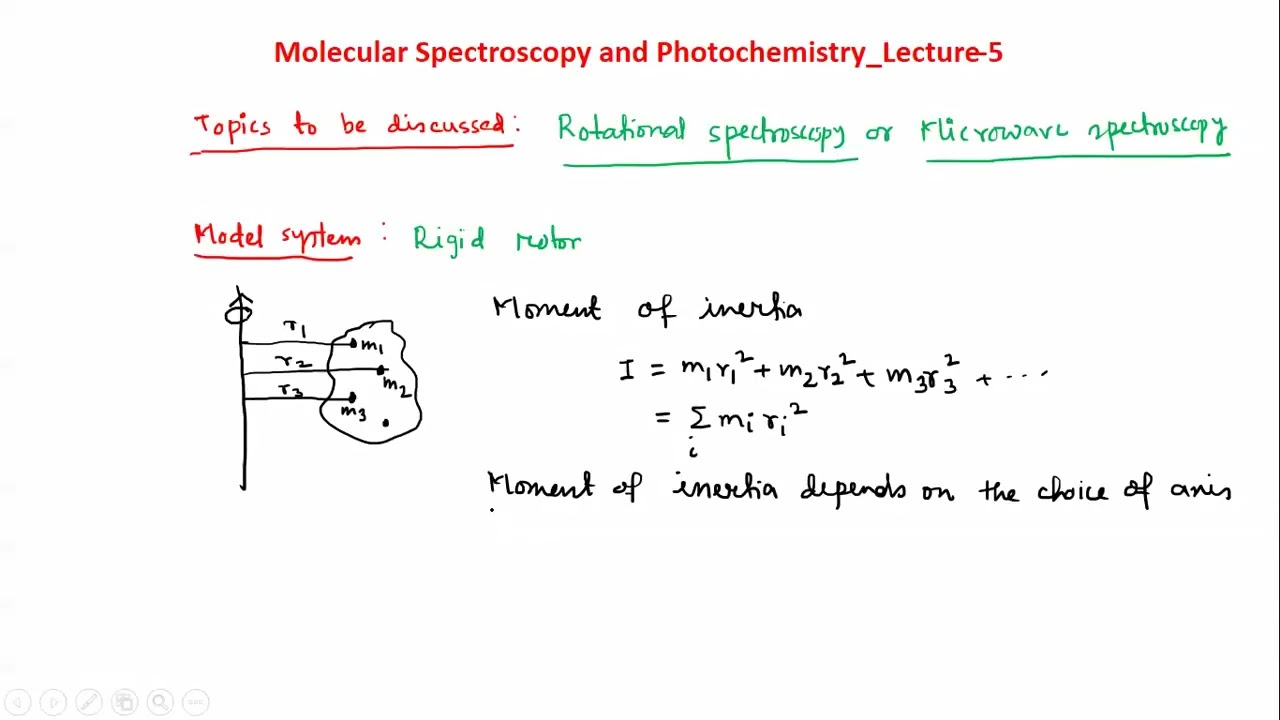 Molecular Spectroscopy and Photochemistry_Lecture-5
Topics to be discussed: Rotational spectroscopy or Microwave spectroscopy
Model system : Rigid rotor
r₁ m₁
r₂ m₂
r₃ m₃
Moment of inertia
I = m₁r₁² + m₂r₂² + m₃r₃² + ...
= Σᵢ mᵢ rᵢ²
Moment of inertia depends on the choice of axis